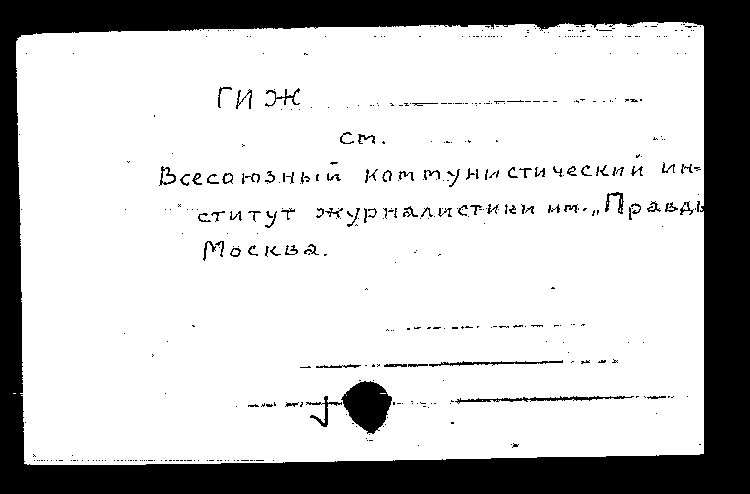 ГИЖ
см.
Всесоюзный коммунистический ин-
ститут журналистики им. „Правды
Москва.